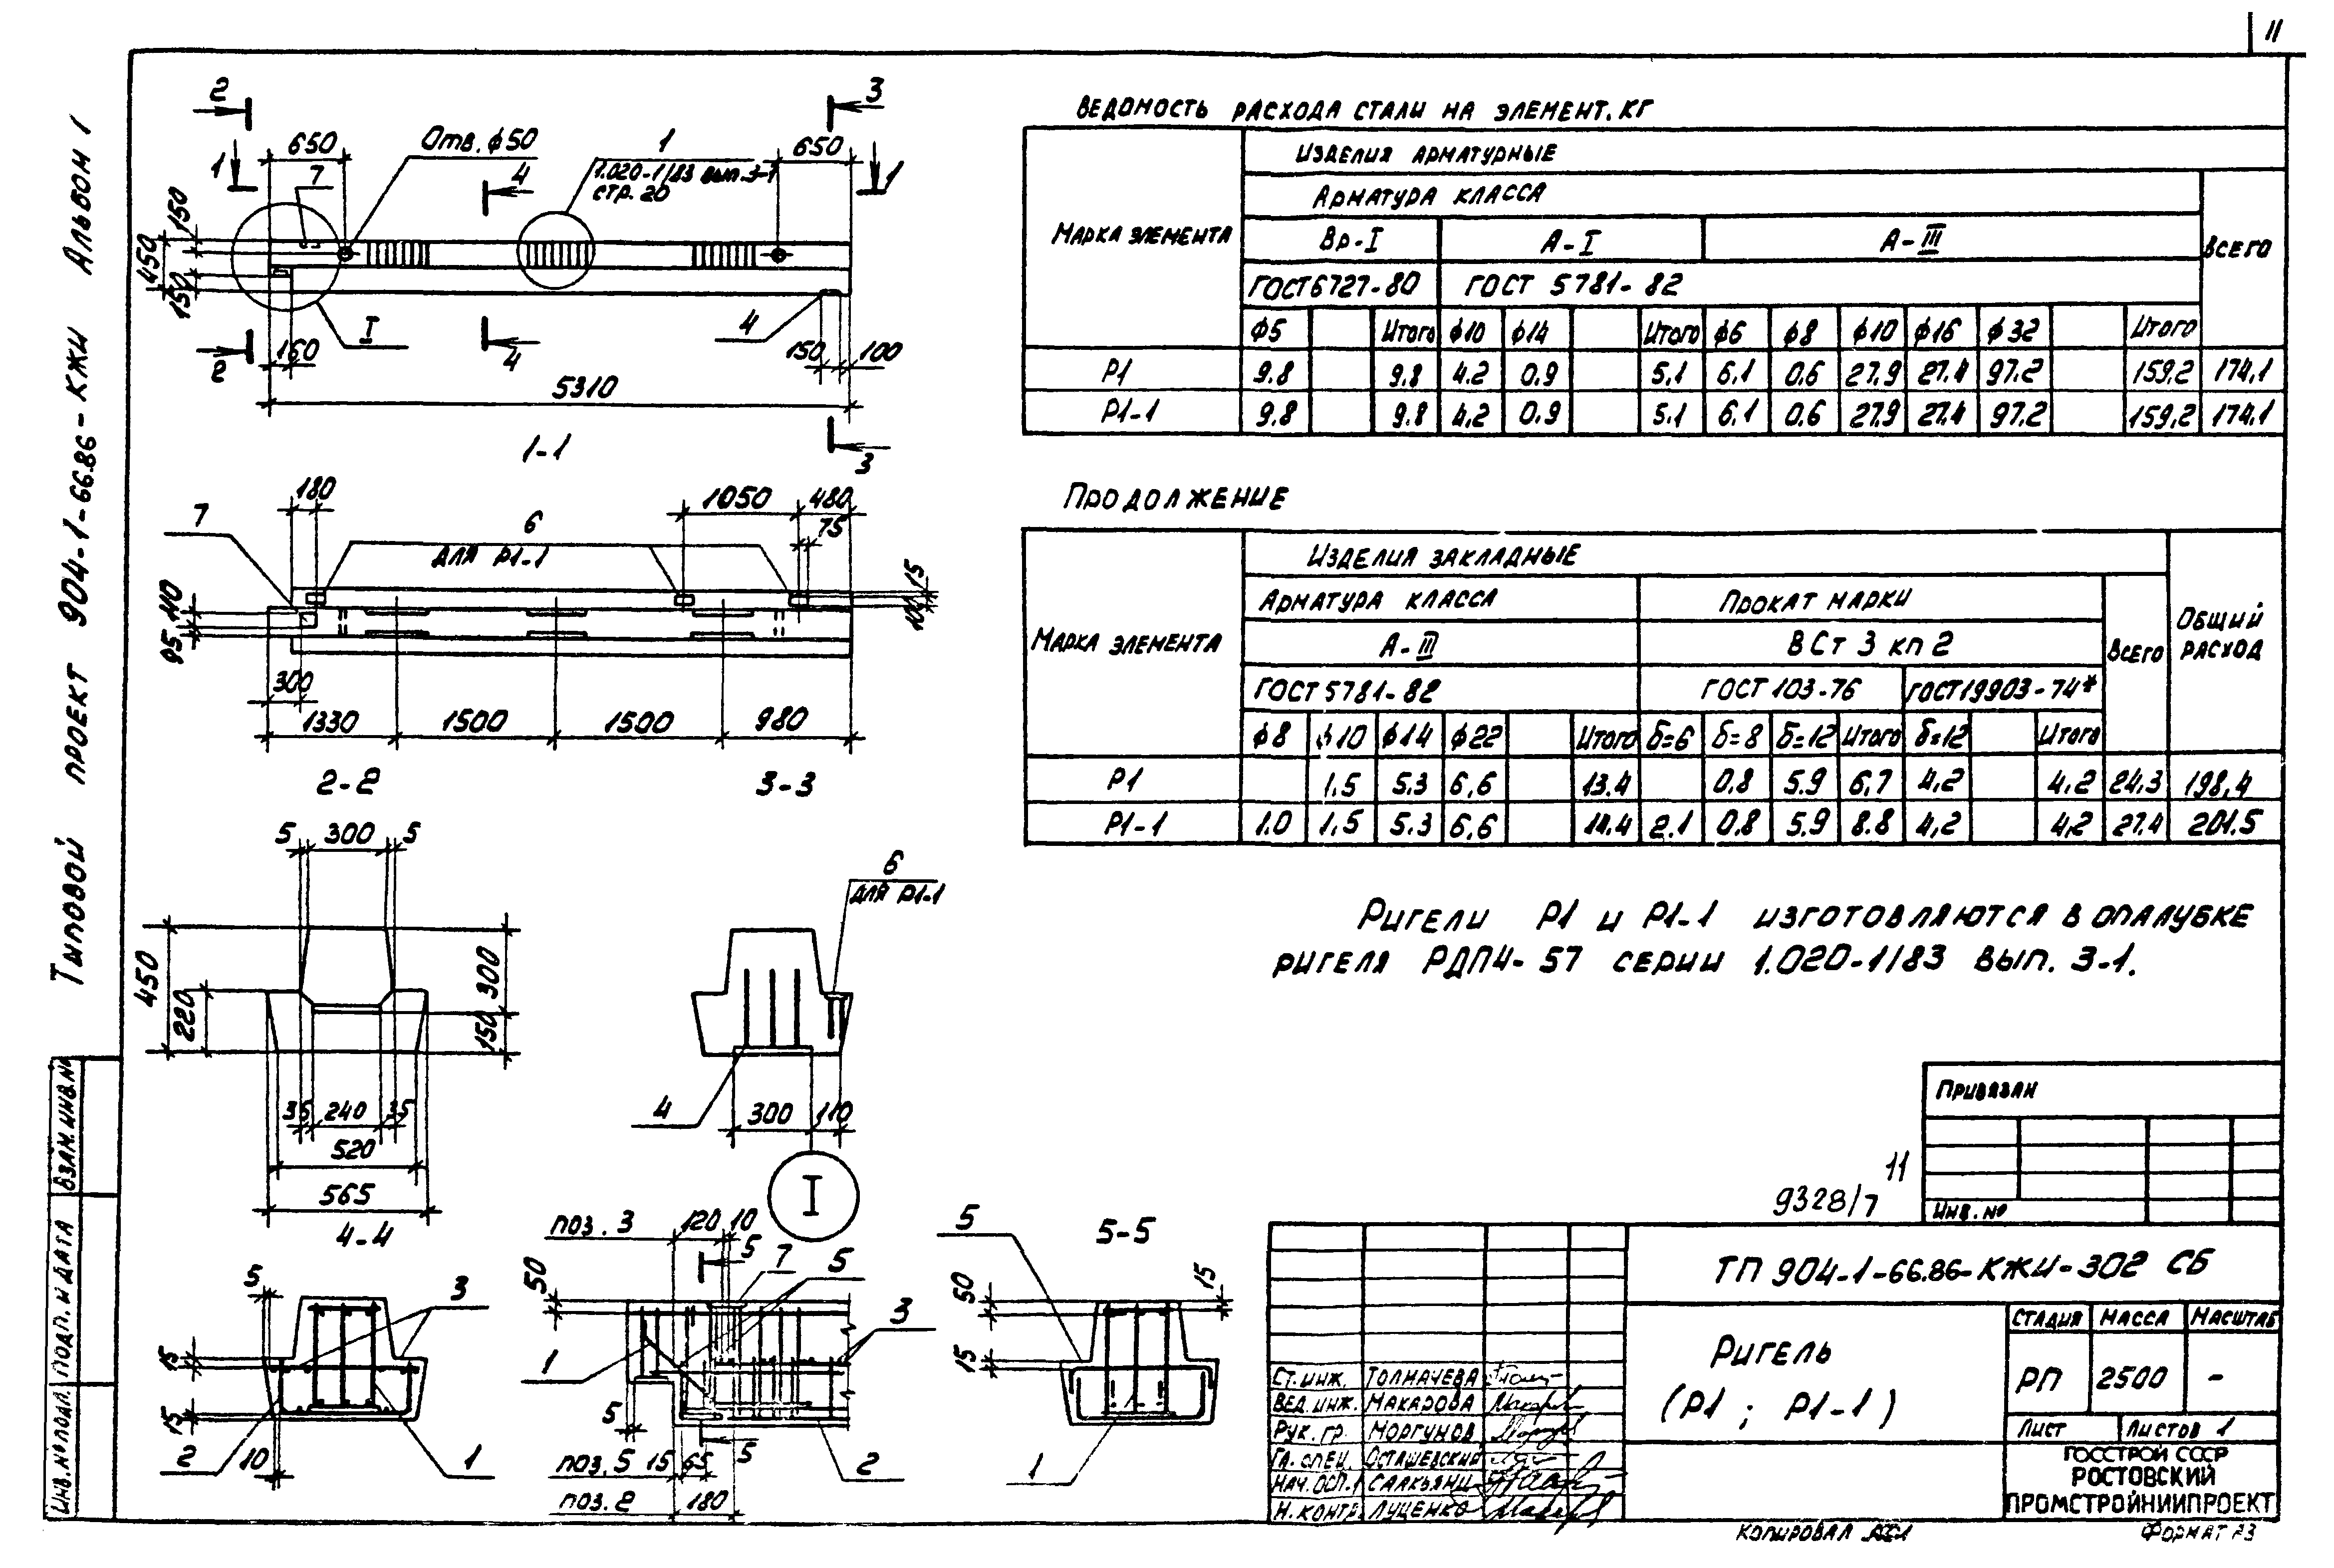 11
Альбом 1
Типовой проект 904-1-66.86-КЖИ
Взам.инв.№
Подп. и дата
Инв.№ подл.
2
3
650
Отв. ф50
1
650
1
7
4
1.020-1/83 вып.3-1
стр.20
1
150
450
150
2
160
I
4
4
150
100
5310
1-1
3
180
1050
480
7
6
для Р1-1
75
15
100
110
95
300
1330
1500
1500
980
2-2
3-3
5
300
5
450
220
300
150
6
для Р1-1
35
240
35
4
300
110
520
565
I
4-4
поз. 3
120
10
5
5-5
5
3
50
5
7
5
50
15
15
15
3
1
15
5
2
10
1
поз. 5
15
65
5
2
1
поз. 2
180
Ведомость расхода стали на элемент, кг
Марка элемента
Изделия арматурные
Арматура класса
Всего
Вр-I
А-I
А-III
ГОСТ 6727-80
ГОСТ 5781-82
ф5 Итого ф10 ф14 Итого ф6 ф8 ф10 ф16 ф32 Итого
Р1 9.8 9.8 4.2 0.9 5.1 6.1 0.6 27.9 27.4 97.2 159.2 174,1
Р1-1 9.8 9.8 4,2 0.9 5.1 6.1 0.6 27.9 27.4 97.2 159,2 174.1
Продолжение
Марка элемента
Изделия закладные
Общий расход
Арматура класса
Прокат марки
Всего
А-III
ВСт 3 кп 2
ГОСТ 5781-82
ГОСТ 103-76
ГОСТ 19903-74*
ф8 ф10 ф14 ф22 Итого б=6 б=8 б=12 Итого б=12 Итого
Р1 1.5 5.3 6,6 13.4 0.8 5.9 6,7 4,2 4,2 24,3 198,4
Р1-1 1.0 1,5 5.3 6,6 14.4 2.1 0.8 5.9 8.8 4,2 4,2 27.4 201.5
Ригели Р1 и Р1-1 изготовляются в опалубке
ригеля РДП4-57 серии 1.020-1/83 вып. 3-1.
Привязан
Инв.№
11
9328/7
ТП 904-1-66.86-КЖИ-302 СБ
Ригель
(Р1 ; Р1-1)
Стадия Масса Масштаб
РП 2500 -
Лист Листов 1
ГОССТРОЙ СССР
РОСТОВСКИЙ
ПРОМСТРОЙНИИПРОЕКТ
Ст.инж. Толмачева
Вед.инж. Макарова
Рук.гр. Моргунов
Гл.спец. Осташевский
Нач.ОСП.1 Саакьянц
Н.контр. Луценко
Копировал
Формат А3